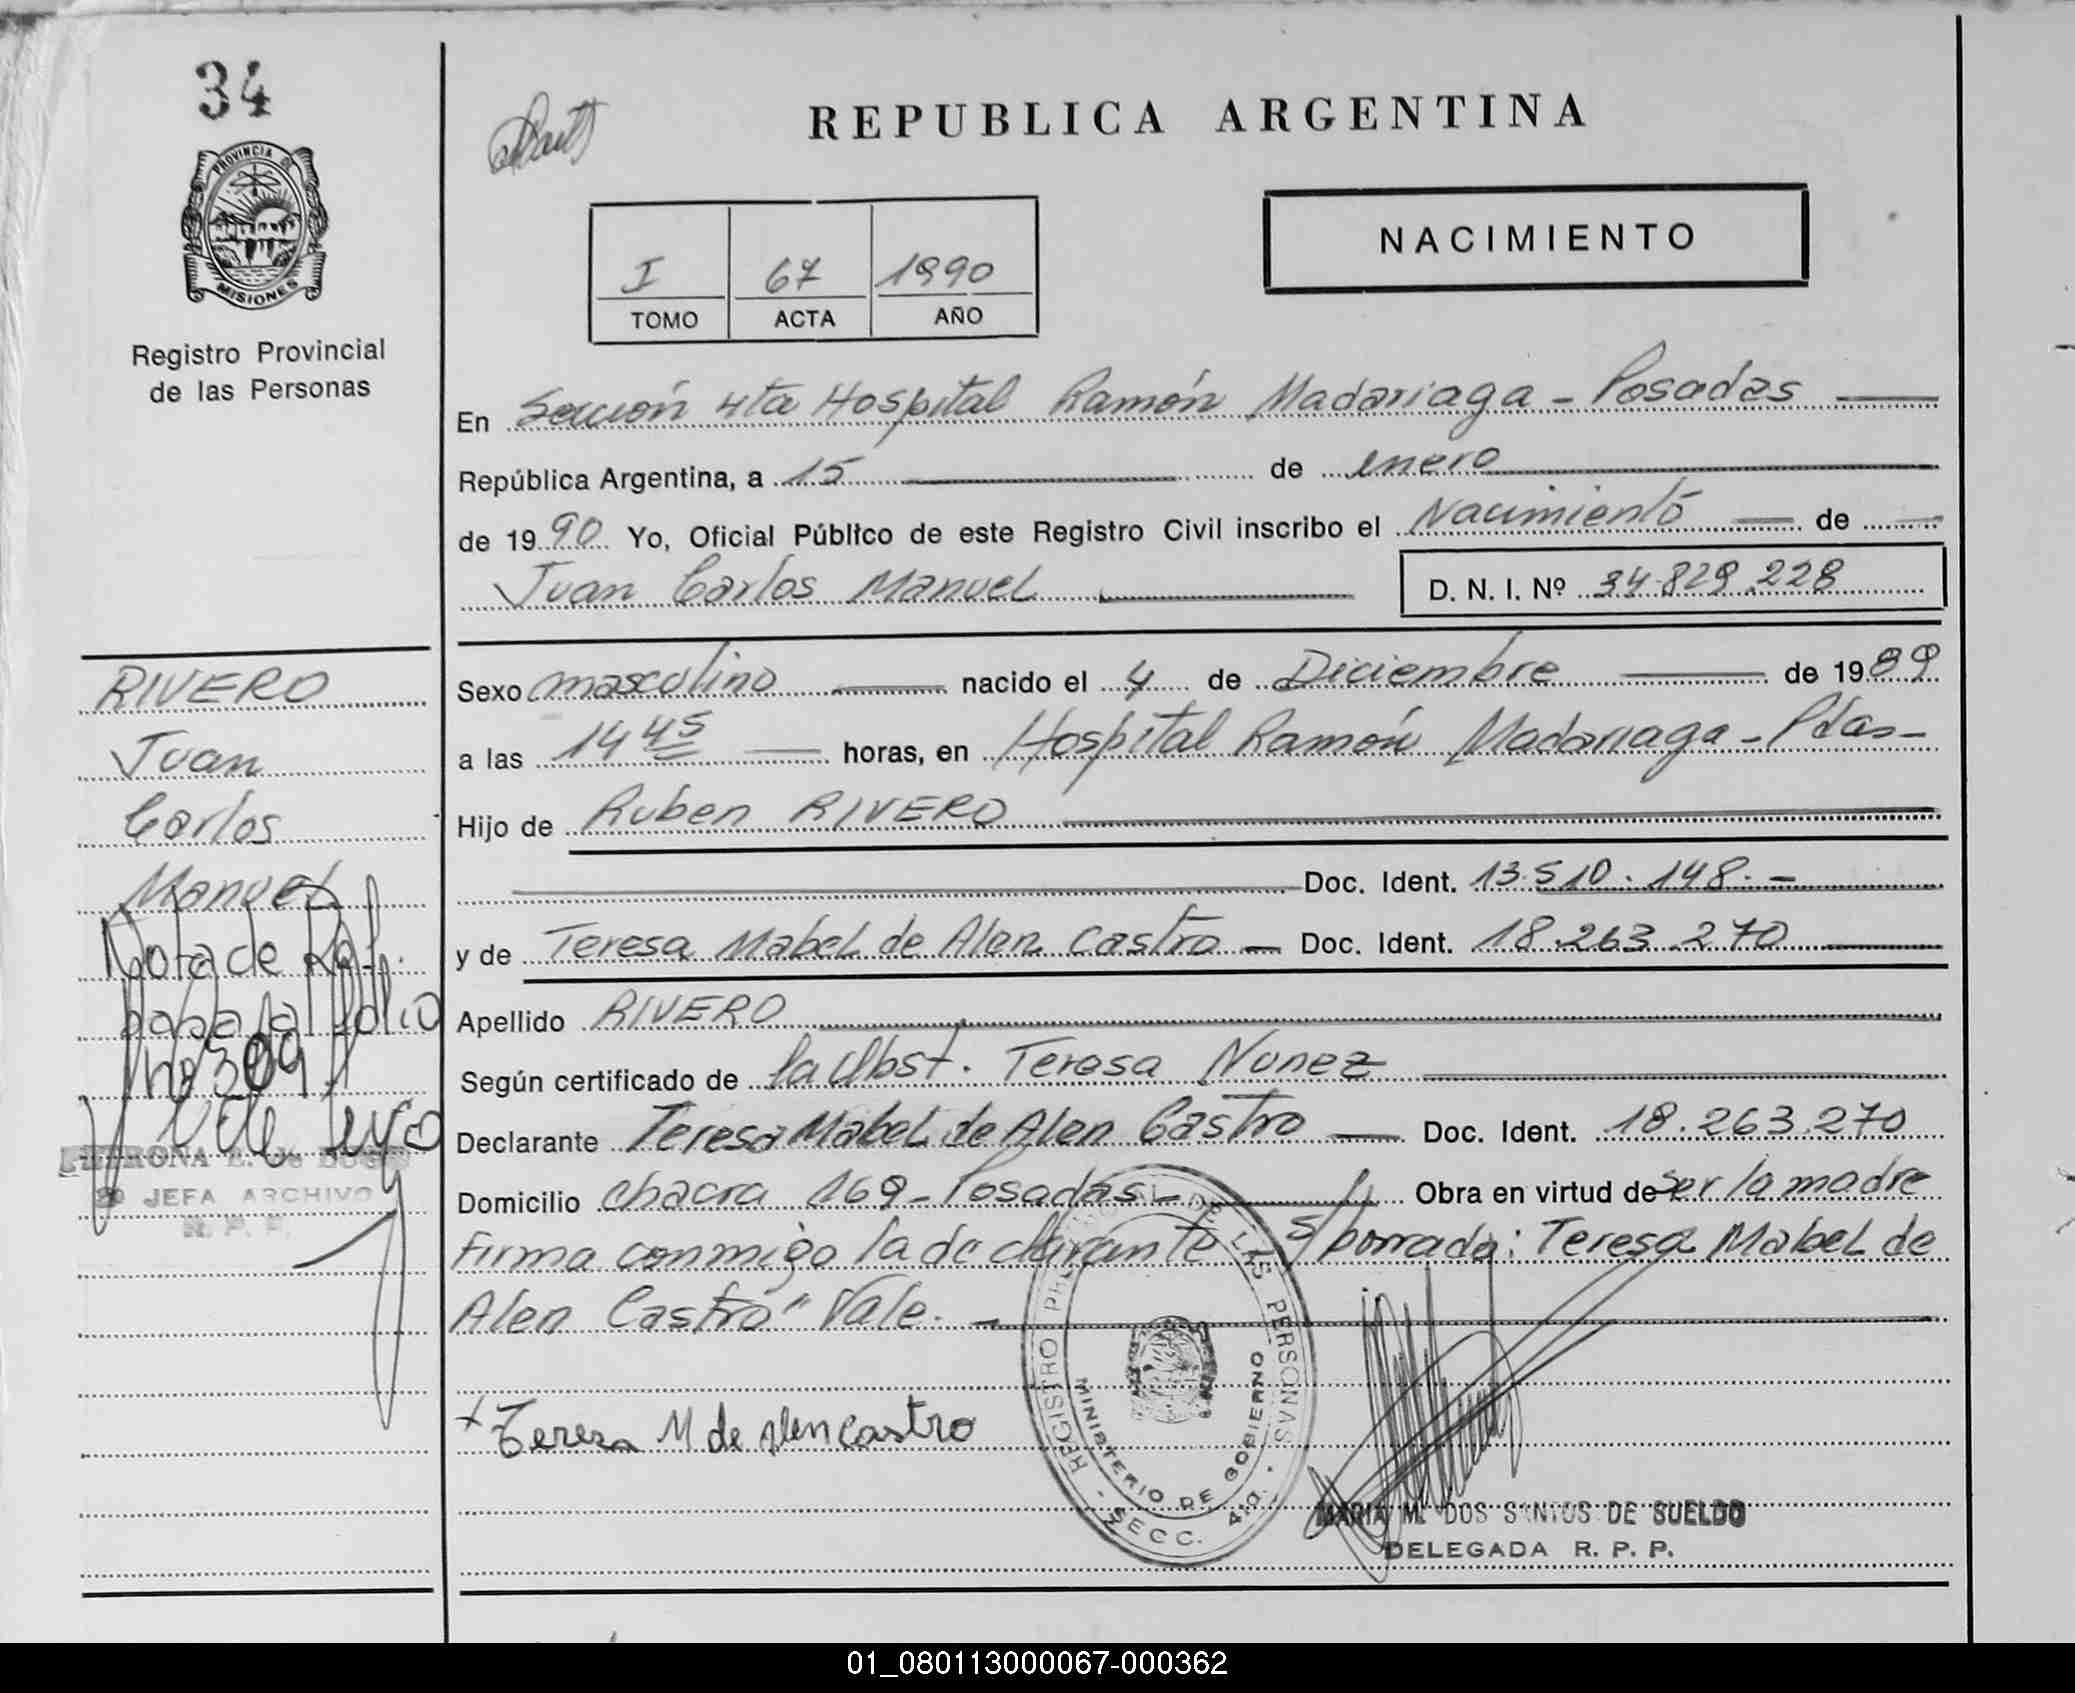 34
PROVINCIA DE
MISIONES
Registro Provincial
de las Personas
REPUBLICA ARGENTINA
NACIMIENTO
I 67 1990
TOMO ACTA AÑO
En Sección 4ta Hospital Ramón Madariaga - Posadas
República Argentina, a 15 de enero
de 1990 Yo, Oficial Público de este Registro Civil inscribo el Nacimiento de
Juan Carlos Manuel D. N. I. Nº 34.829.228
Sexo masculino nacido el 4 de Diciembre de 1989
a las 14 45 horas, en Hospital Ramón Madariaga - Pdas -
Hijo de Ruben RIVERO
Doc. Ident. 13.510.148. -
y de Teresa Mabel de Alen Castro - Doc. Ident. 18.263.270
Apellido RIVERO
Según certificado de la Obst. Teresa Nunez
Declarante Teresa Mabel de Alen Castro Doc. Ident. 18.263.270
Domicilio chacra 169 - Posadas - Obra en virtud de ser la madre
Firma conmigo la declarante S/borrado: Teresa Mabel de
Alen Castro" Vale. -
+ Teresa M de Alencastro
REGISTRO PROVINCIAL DE LAS PERSONAS
MINISTERIO DE GOBIERNO
- SECC. 4ta. -
MARIA M. DOS SANTOS DE SUELDO
DELEGADA R. P. P.
RIVERO
Juan
Carlos
Manuel
Nota de Ref.
pasa al folio
no 309
JEFA ARCHIVO
R. P. P.
01_080113000067-000362